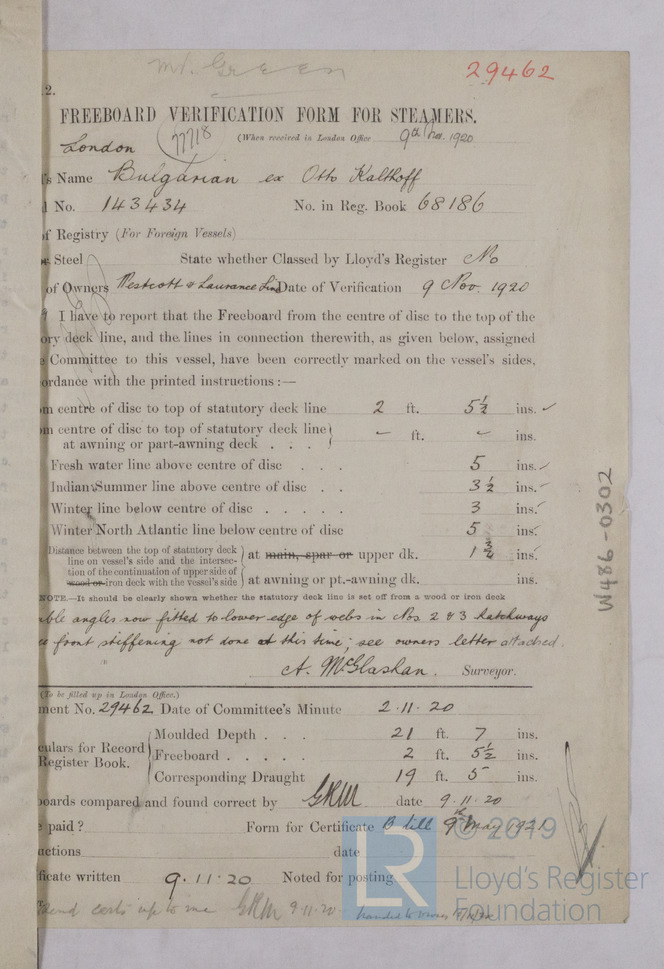 Mr. Green
29462
12.
FREEBOARD VERIFICATION FORM FOR STEAMERS.
77718
(When received in London Office 9th Nov. 1920
London
's Name Bulgarian ex Otto Kalthoff
l No. 143434 No. in Reg. Book 68186
of Registry (For Foreign Vessels)
Steel State whether Classed by Lloyd's Register No
of Owners Westcott & Laurance Line Date of Verification 9 Nov. 1920
I have to report that the Freeboard from the centre of disc to the top of the
ory deck line, and the lines in connection therewith, as given below, assigned
e Committee to this vessel, have been correctly marked on the vessel's sides,
ordance with the printed instructions:—
m centre of disc to top of statutory deck line 2 ft. 5½ ins. ✓
m centre of disc to top of statutory deck line
at awning or part-awning deck . . . – ft. – ins.
Fresh water line above centre of disc . . . 5 ins. ✓
Indian Summer line above centre of disc . . 3½ ins. ✓
Winter line below centre of disc . . . . . 3 ins. ✓
Winter North Atlantic line below centre of disc 5 ins. ✓
Distance between the top of statutory deck
line on vessel's side and the intersec-
tion of the continuation of upper side of
wood or iron deck with the vessel's side
at main, spar or upper dk. 1¾ ins. ✓
at awning or pt.-awning dk. ins.
NOTE.—It should be clearly shown whether the statutory deck line is set off from a wood or iron deck
ble angles now fitted to lower edge of webs in Nos. 2 & 3 hatchways
front stiffening not done at this time; see owners letter attached.
A. McGlashan. Surveyor.
(To be filled up in London Office.)
ment No. 29462 Date of Committee's Minute 2.11.20
culars for Record
Register Book.
Moulded Depth . . . 21 ft. 7 ins.
Freeboard . . . . . 2 ft. 5½ ins.
Corresponding Draught 19 ft. 5 ins.
boards compared and found correct by GRM date 9.11.20
e paid? Form for Certificate B till 9th May 1921
uctions date
ficate written 9.11.20 Noted for posting
send costs up to me GRM 9.11.20. handed to
W486-0302
© 2019
LR
Lloyd's Register
Foundation